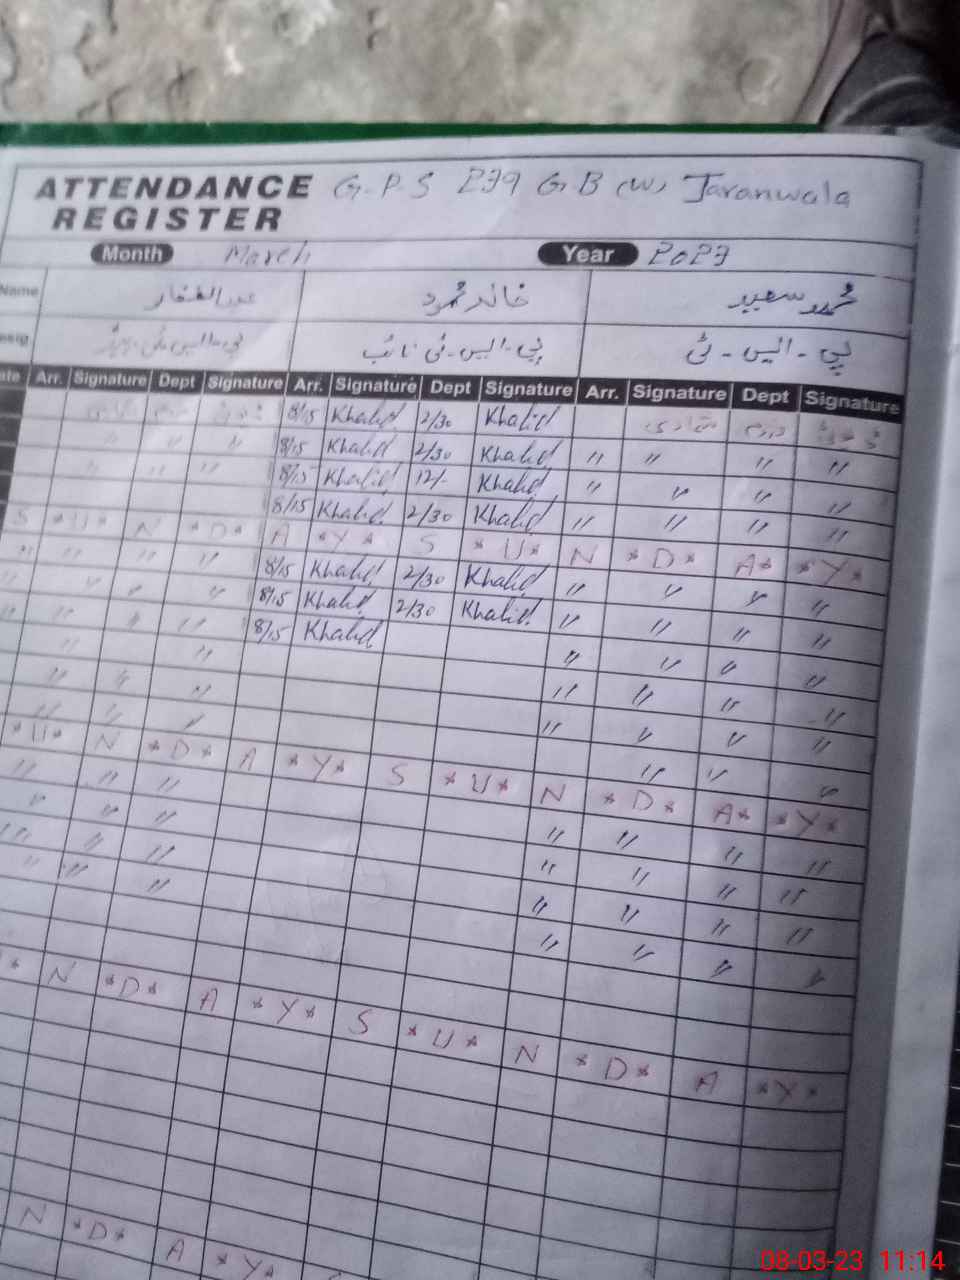 ATTENDANCE REGISTER G.P.S 239 G.B (W) Jaranwala
Month March Year 2023
Name عبدالغفار خالد محمود محمد سعید
پی۔ایس۔ٹی نائب پی۔ایس۔ٹی
Arr. Signature Dept Signature Arr. Signature Dept Signature Arr. Signature Dept Signature
8/15 Khalid 2/30 Khalid
" " " 8/15 Khalid 2/30 Khalid " " " "
" " " 8/15 Khalid 12/- Khalid " " " "
8/15 Khalid 2/30 Khalid " " " "
S *U* N *D* A *Y* S *U* N *D* A* *Y*
" " " " 8/15 Khalid 2/30 Khalid " " " "
" " " " 8/15 Khalid 2/30 Khalid " " " "
" " " " 8/15 Khalid " " " "
" " " " " " "
" " " " " " "
" " " " " "
*U* N *D* A *Y* S *U* N *D* A* *Y*
" " " " " " "
" " " " " " "
" " " " " " "
" " " " " " "
* N *D* A *Y* S *U* N *D* A *Y*
N *D* A *Y*
08-03-23 11:14